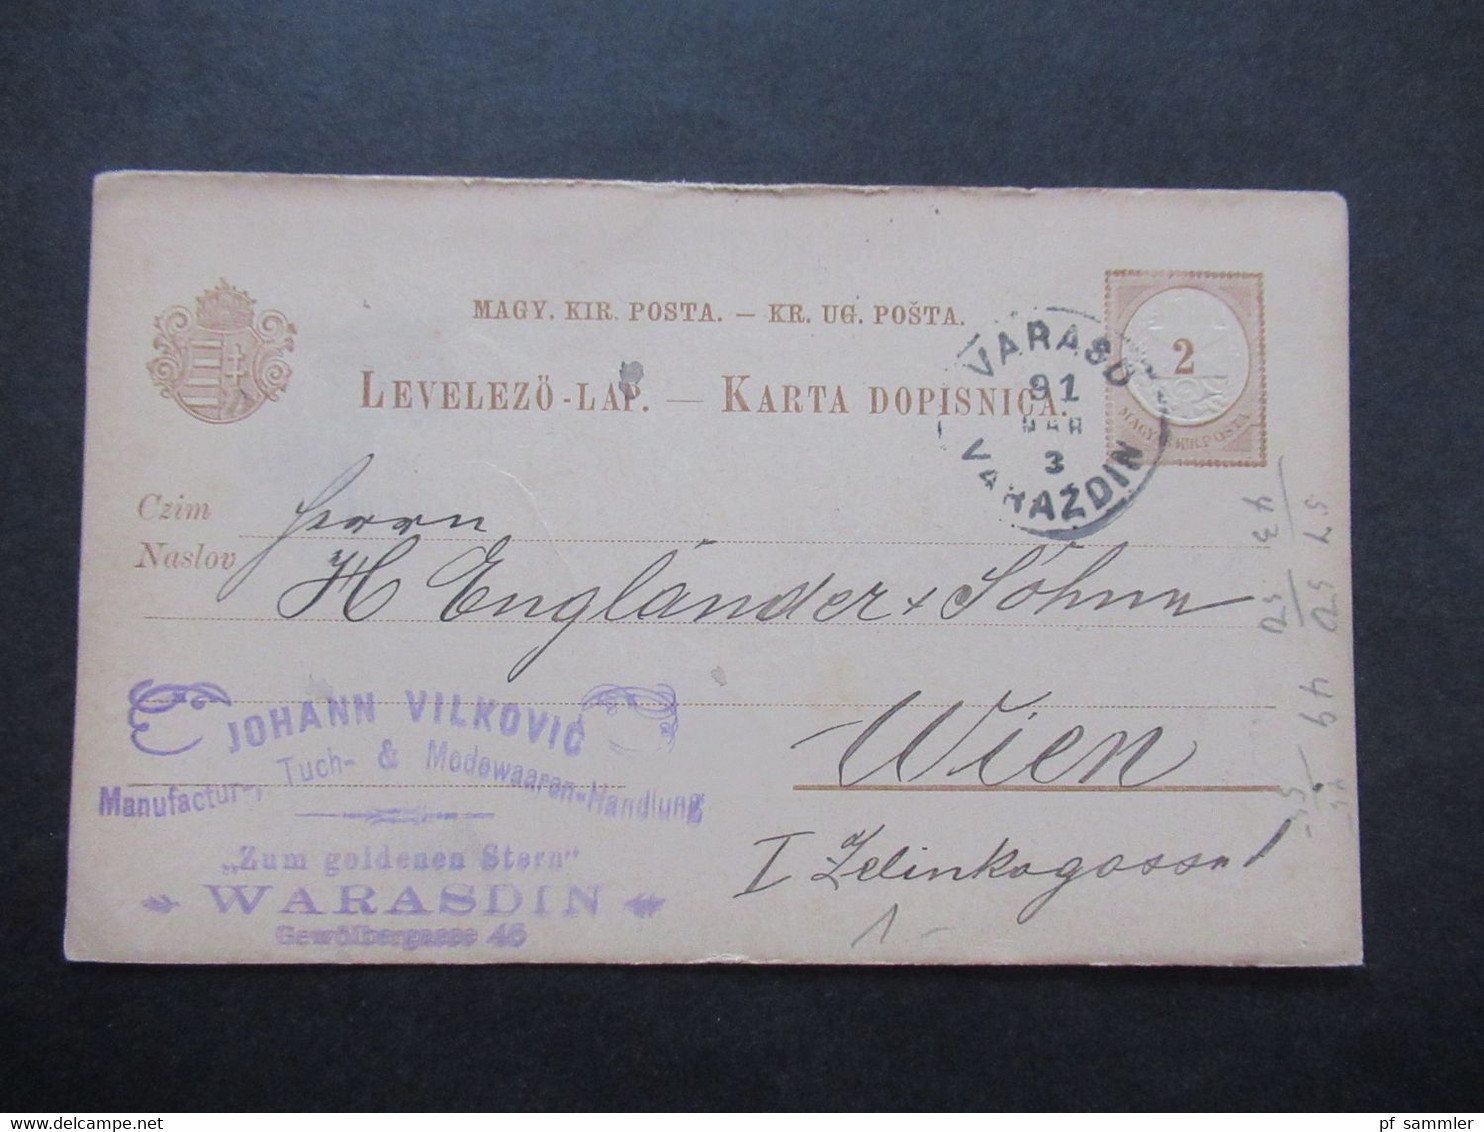 MAGY. KIR. POSTA. — KR. UG. POŠTA.
LEVELEZŐ-LAP. — KARTA DOPISNICA.
2
MAGY. KIR. POSTA
VARASD
91
MAR
3
VARAŽDIN
Czim
Naslov
Herrn
H Engländer + Söhne
Wien
I Zelinkagasse 1
JOHANN VILKOVIĆ
Manufactur-, Tuch- & Modewaaren-Handlung
„Zum goldenen Stern"
WARASDIN
Gewölbergasse 46
pf sammler